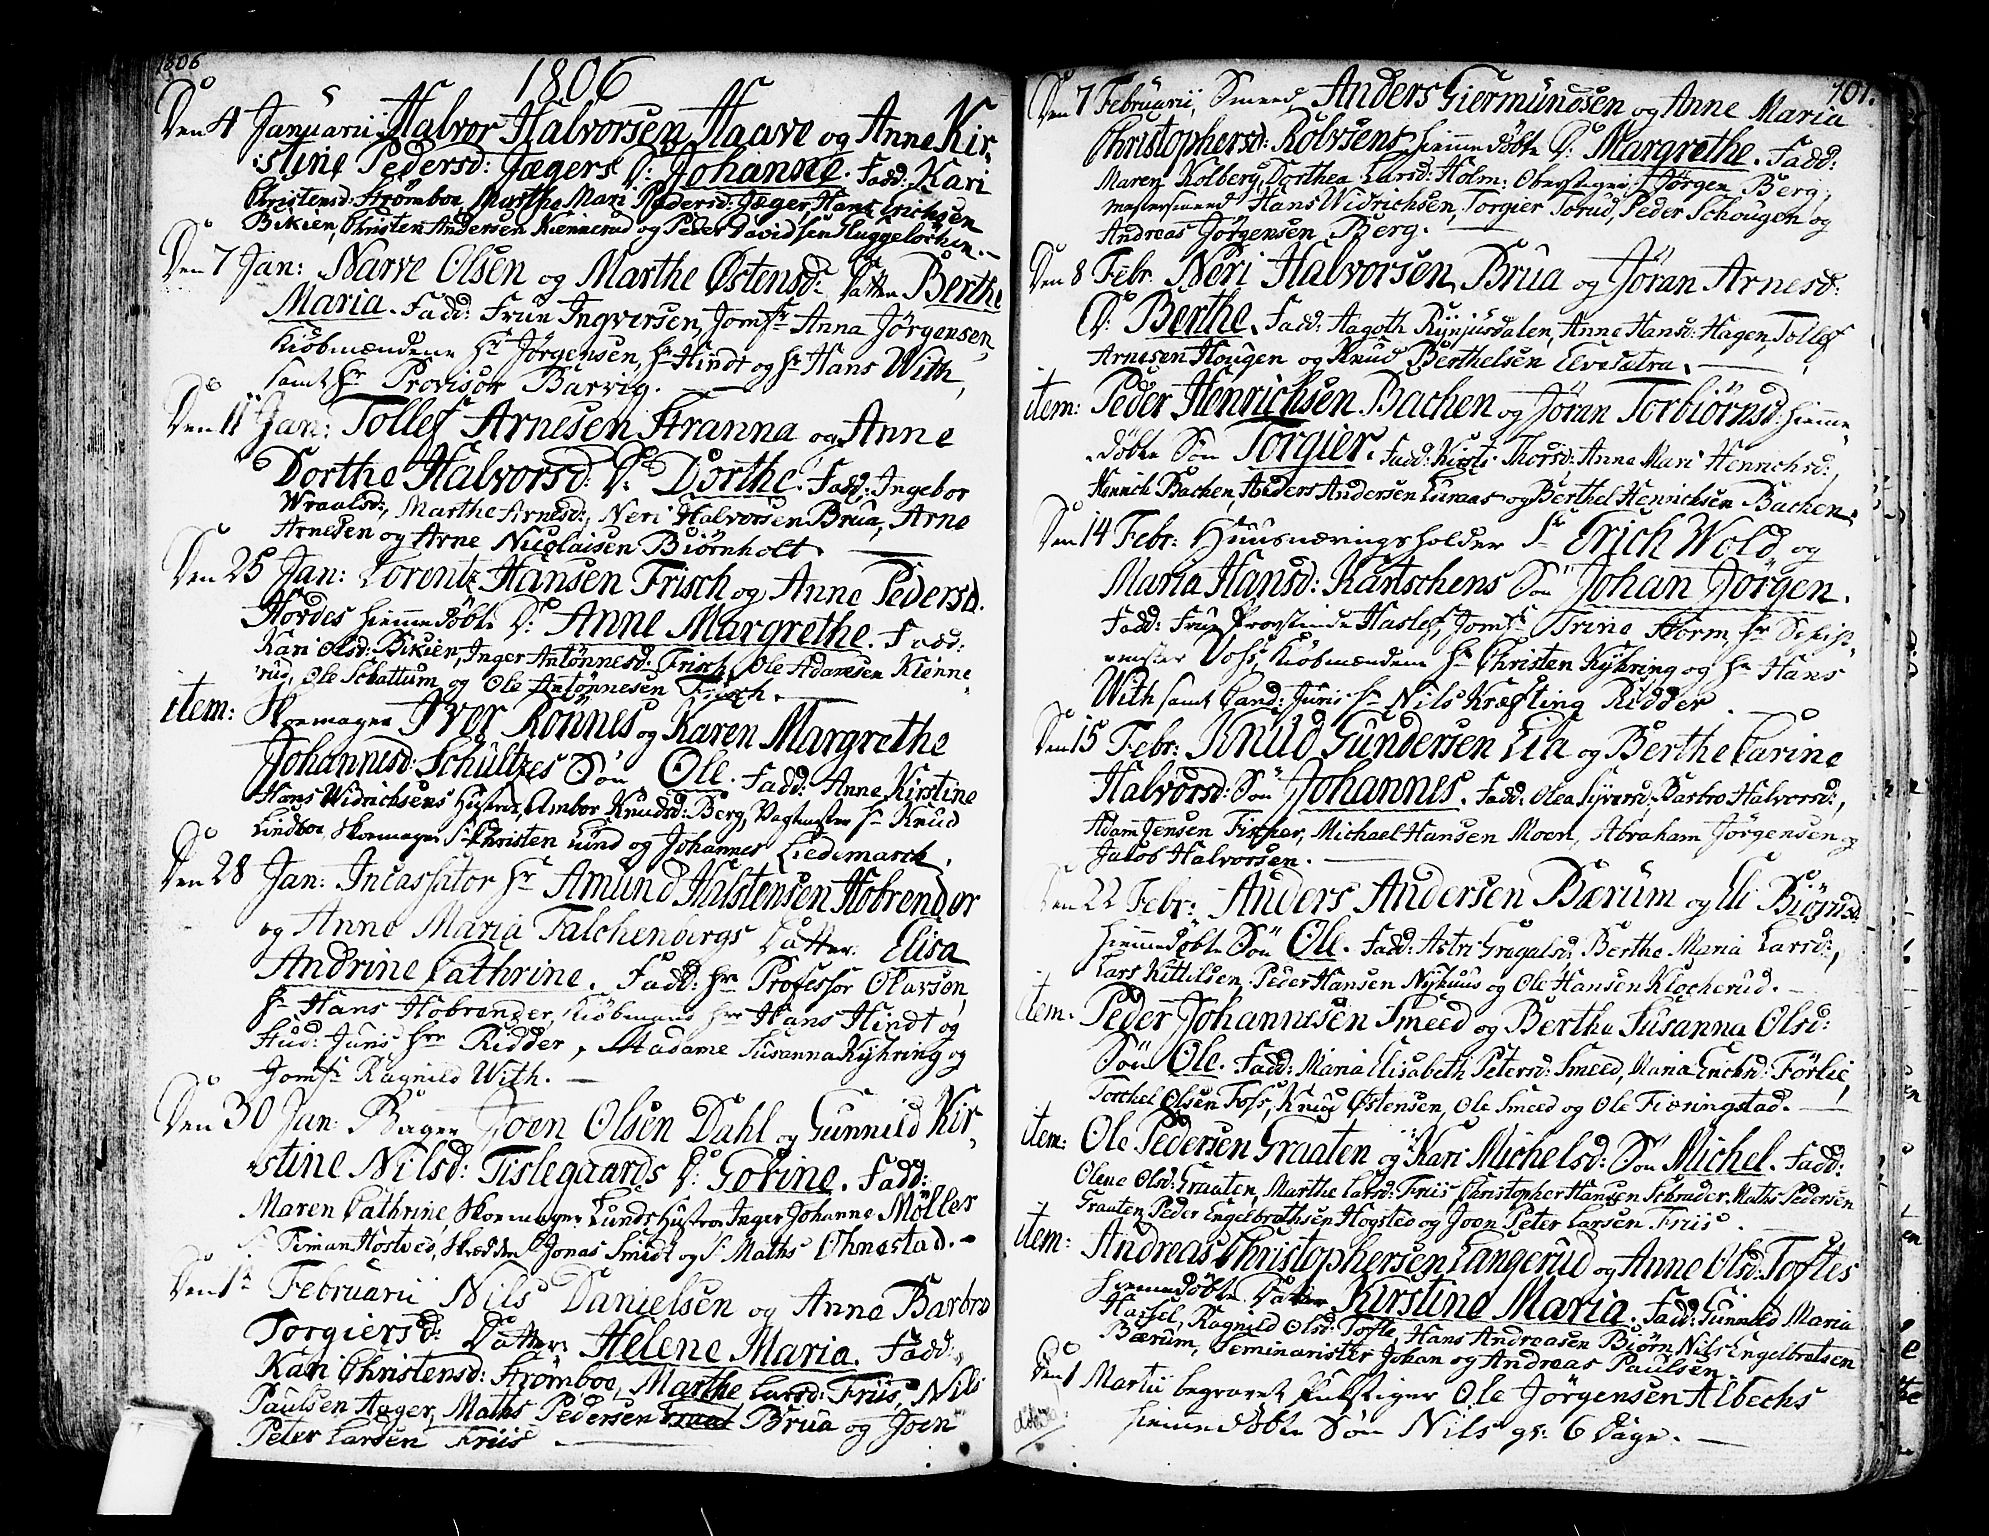 1806
1806
Den 4 Januarii Halvor Halvorsen Haave og Anne Kir-
stine Pedersd: Jægers D: Johanne. Fadd: Kari
Christensd: Strømboe, Marthe Mari Pedersd: Jæger, Hans Erichsen
Bikien, Christen Andersen Kiennerud og Peder Davidsen Huggelochen.
Den 7 Jan: Narve Olsen og Marthe Østensd: Datter Berthe
Maria. Fadd: Frue Ingversen, Jomfr Anna Jørgensen,
Kiøbmændene Hr Jørgensen, Hr Hindt og Hr Hans With,
samt Hr Provisor Barvig.
Den 11 Jan: Tollef Arnesen Stranna og Anne
Dorthe Halvorsd: D: Dorthe. Fadd: Ingebor
Wraalsd:, Marthe Arnesd:, Neri Halvorsen Brua, Arne
Arnesen og Arne Nicolaisen Biørnholt.
Den 25 Jan: Lorentz Hansen Frisch og Anne Pedersd.
Hordes hiemmedøbte D: Anne Margrethe. Fadd:
Kari Olsd: Bikien, Inger Antønnesd: Frisch, Ole Adamsen Kienne-
rud, Ole Schattum og Ole Antønnesen Frisch.
item: Skoemager Iver Rønnes og Karen Margrethe
Johannisd: Schültzes Søn Ole. Fadd: Anne Kirstine
Hans Widrichsens Hustrue, Ambor Knudsd: Berg, Vagtmester Hr Knud
Lindboe, Skoemager Sr Christen Lund og Johannes Liedemarck.
Den 28 Jan: Incassator Hr Amund Halstensen Hobrender
og Anne Maria Falchenbergs Datter Elisa
Andrine Cathrine. Fadd: Hr Professor Olavsen,
Hr Hans Hobrender, Kiøbmand Hr Hans Hindt og
Stud: Juris Hr Ridder, Madame Susanna Kyhring og
Jomfr Ragnild With.
Den 30 Jan: Bager Joen Olsen Dahl og Gunnild Kir-
stine Nilsd: Tislegaards D: Gorine. Fadd:
Maren Cathrine, Skoemager Lunds Hustroe Inger Johanne Møller
Sr Timan Hostved, Skrædder Jonas Smidt og Sr Maths Ohnestad.
Den 1te Februarii Nils Danielsen og Anne Barbro
Torgiersd: Datter Helene Maria. Fadd:
Kari Christensd: Strømboe, Marthe Larsd: Friis, Nils
Paulsen Aager, Maths Pedersen Brua og Joen
Peter Larsen Friis
701.
Den 7 Februarii, Smeed Anders Giermundsen og Anne Maria
Christophersd: Rolvsens hiemmedøbte D: Margrethe. Fadd:
Maren Kolberg, Dorthea Larsd: Holm: Oberstiger Jørgen Berg,
mestersmeed Hans Widrichsen, Torgier Torud, Peder Schougen og
Andreas Jørgensen Berg.
Den 8 Febr. Neri Halvorsen Brua og Jøran Arnesd:
D: Berthe. Fadd: Aagoth Rynjusdalen, Anne Hansd: Hagen, Tollef
Arnesen Hougen og Knud Berthelsen Elvesætra.
item: Peder Henrichsen Bachen og Jøran Torbiørnsd: hiemme-
døbte Søn Torgier. Fadd: Kirsti Thorsd: Anne Mari Henrichsd:,
Henrich Bachen, Anders Andersen Luraas og Berthel Henrichsen Bachen.
Den 14 Febr: Huusnæringsholder Sr Erich Wold og
Maria Hansd: Kartschens Søn Johan Jørgen.
Fadd: Frue Provstinde Haslef, Jomfr Trine Horm, Hr Schip-
remster Vohs, Kiøbmændene Hr Christen Kyhring og Hr Hans
With samt Cand: Juris Hr Nils Kræfting Ridder.
Den 15 Febr: Knud Gundersen Lia og Berthe Carine
Halvorsd: Søn Johannes. Fadd: Olea Syversd: Barbro Halvorsd:,
Adam Jensen Fischer, Michael Hansen Moen, Abraham Jørgensen og
Jacob Halvorsen.
Den 22 Febr: Anders Andersen Bærum og Eli Biørnsd:
hiemmedøbte Søn Ole. Fadd: Astri Gregalsd: Berthe Maria Larsd:,
Lars Kittilsen, Peder Hansen Nyhuus og Ole Hansen Klocherud.
item. Peder Johannesen Smeed og Berthe Susanna Olsd:
Søn Ole. Fadd: Maria Elisabeth Petersd: Smeed, Maria Erichd: Førlie,
Torchel Olsen Foss, Knud Østensen, Ole Smeed og Ole Fiæringstad.
item: Ole Pedersen Graaten og Kari Michelsd: Søn Michel. Fadd:
Olene Olsd: Graaten, Marthe Larsd: Friis Christopher Hansen Schrader. Maths Pedersen
Graaten, Peder Engelbrethsen Hogsted og Joen Peter Larsen Friis.
item: Andreas Christophersen Langerud og Anne Olsd: Toftes
hiemmedøbte Datter Kirstine Maria. Fadd: Gunnild Maria
Hassel, Ragnild Olsd: Tofte, Hans Andreasen Biørn, Nils Engelbretsen
Bærum, Seminarister Johan og Andreas Paulsen.
Den 1 Martii begravet Pukstiger Ole Jørgensen Albechs
hiemmedøbte Søn Nils gs: 6 Dage.